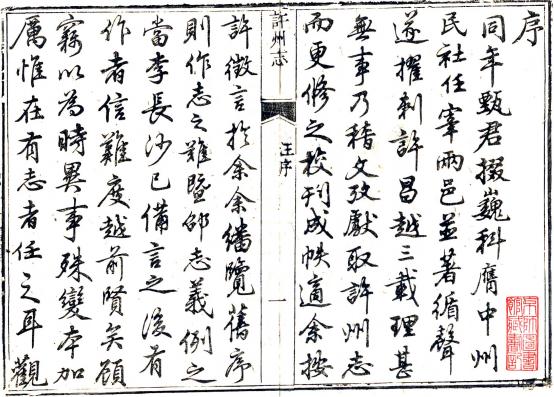 序
同年甄君掇巍科膺中州
民社任宰兩邑並著循聲
遂擢刺許昌越三載理甚
無事乃稽文攷獻取許州志
而更修之校刊成帙適余按
許州志 汪序 一
許徵言於余余繙覽舊序
則作志之難暨邵志義例之
當李長沙已備言之後有
作者信難度越前賢矣顧
竊以為時異事殊變本加
厲惟在有志者任之耳觀